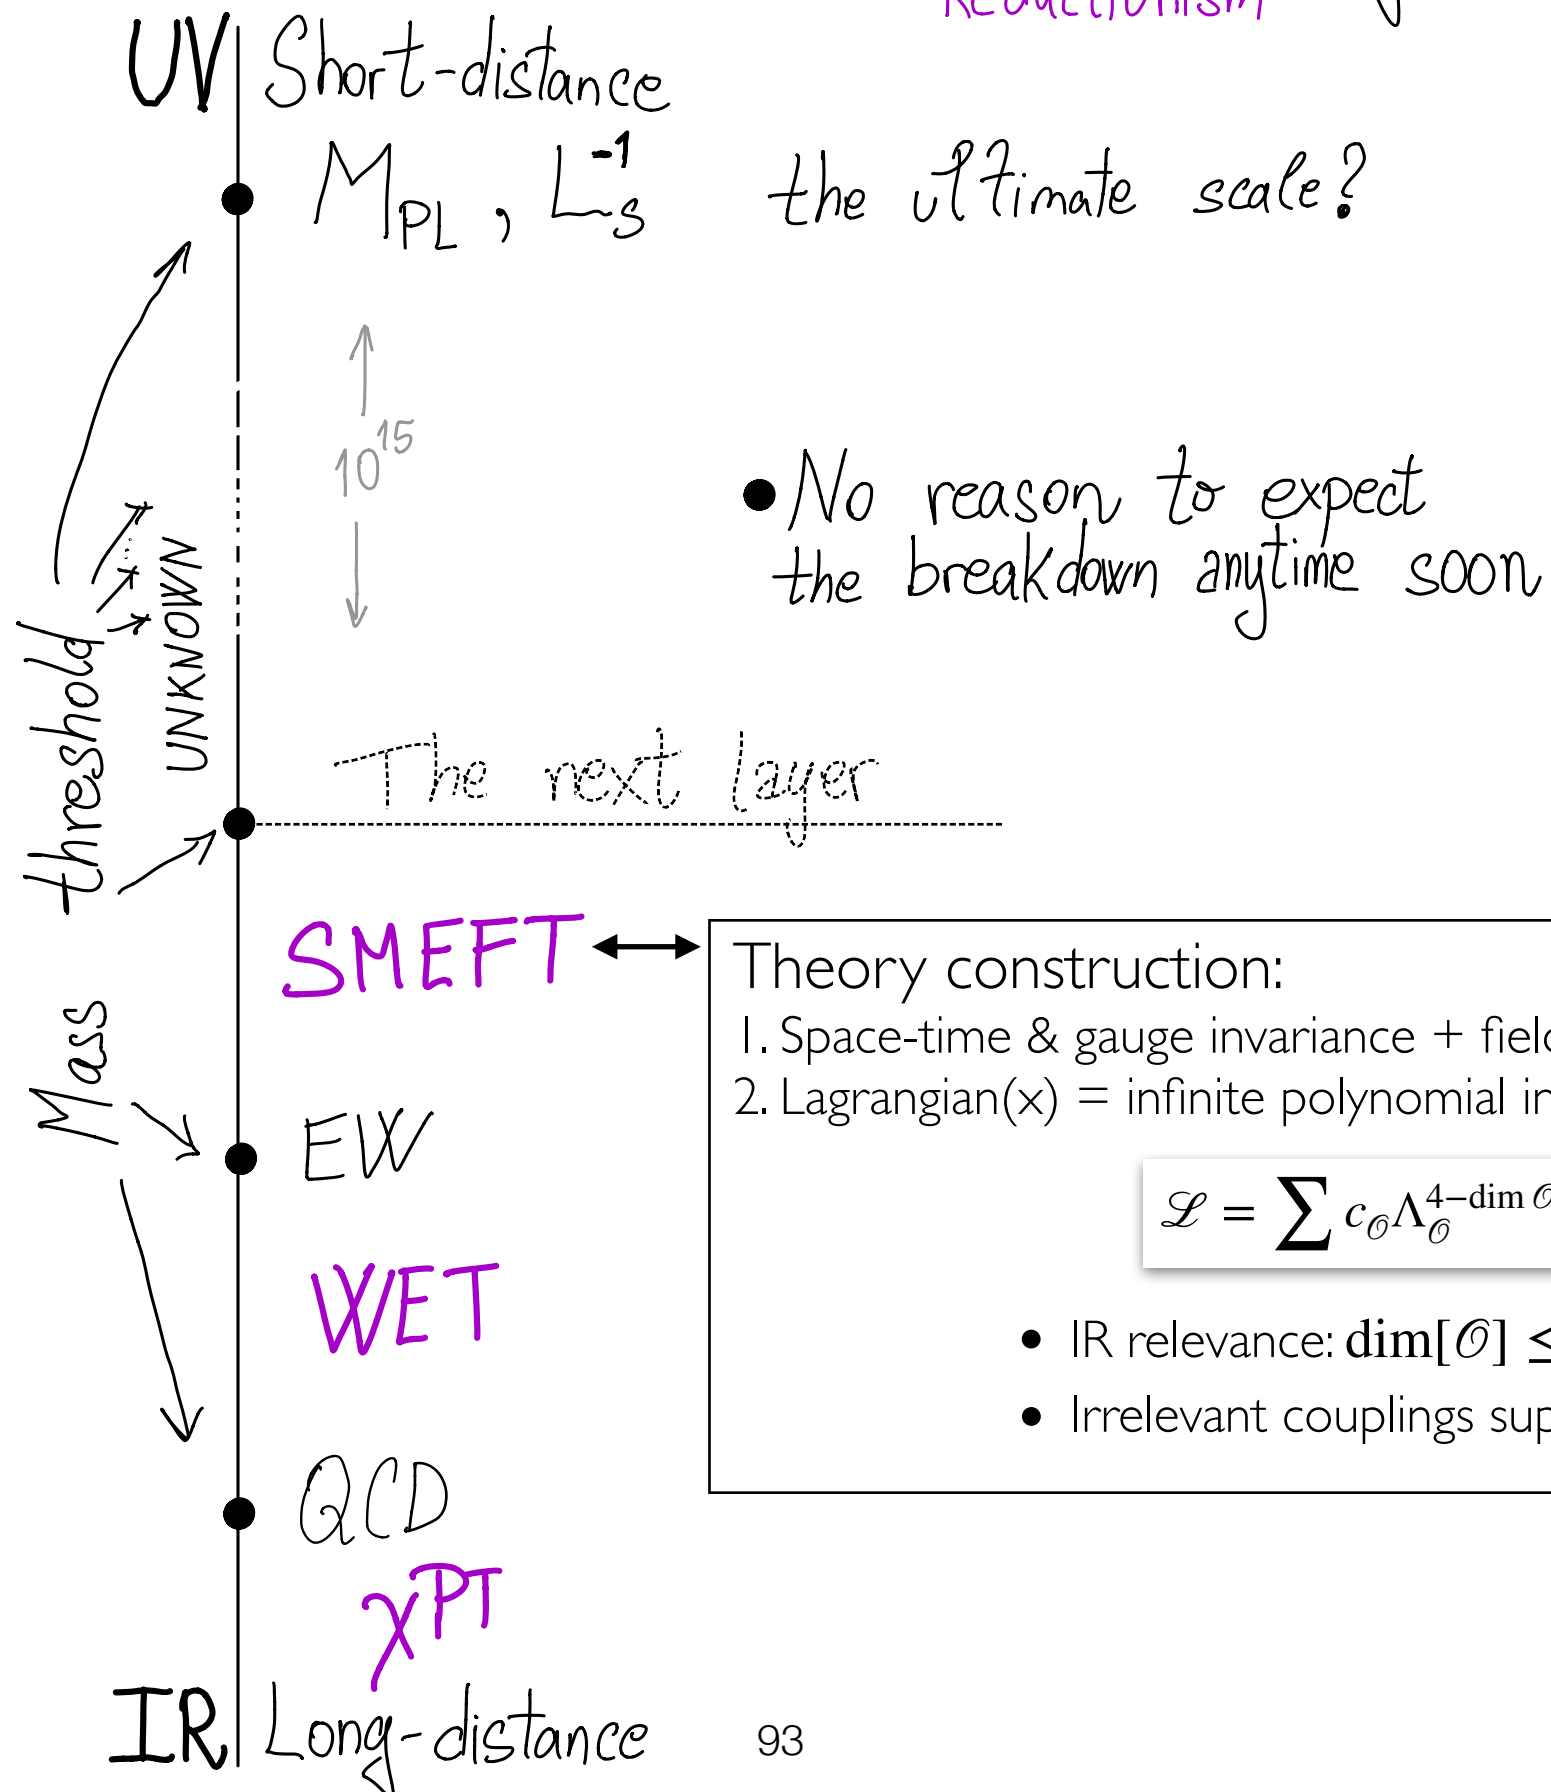 Reductionism
UV Short-distance
M_PL , L_s^-1 the ultimate scale?
10^15
• No reason to expect
the breakdown anytime soon
UNKNOWN
Mass threshold
The next layer
SMEFT
Theory construction:
1. Space-time & gauge invariance +
2. Lagrangian(x) = infinite polynomial in
ℒ = ∑ c_𝒪 Λ_𝒪^{4−dim 𝒪}
EW
WET
• IR relevance: dim[𝒪] ≤
• Irrelevant couplings
QCD
χPT
IR Long-distance
93